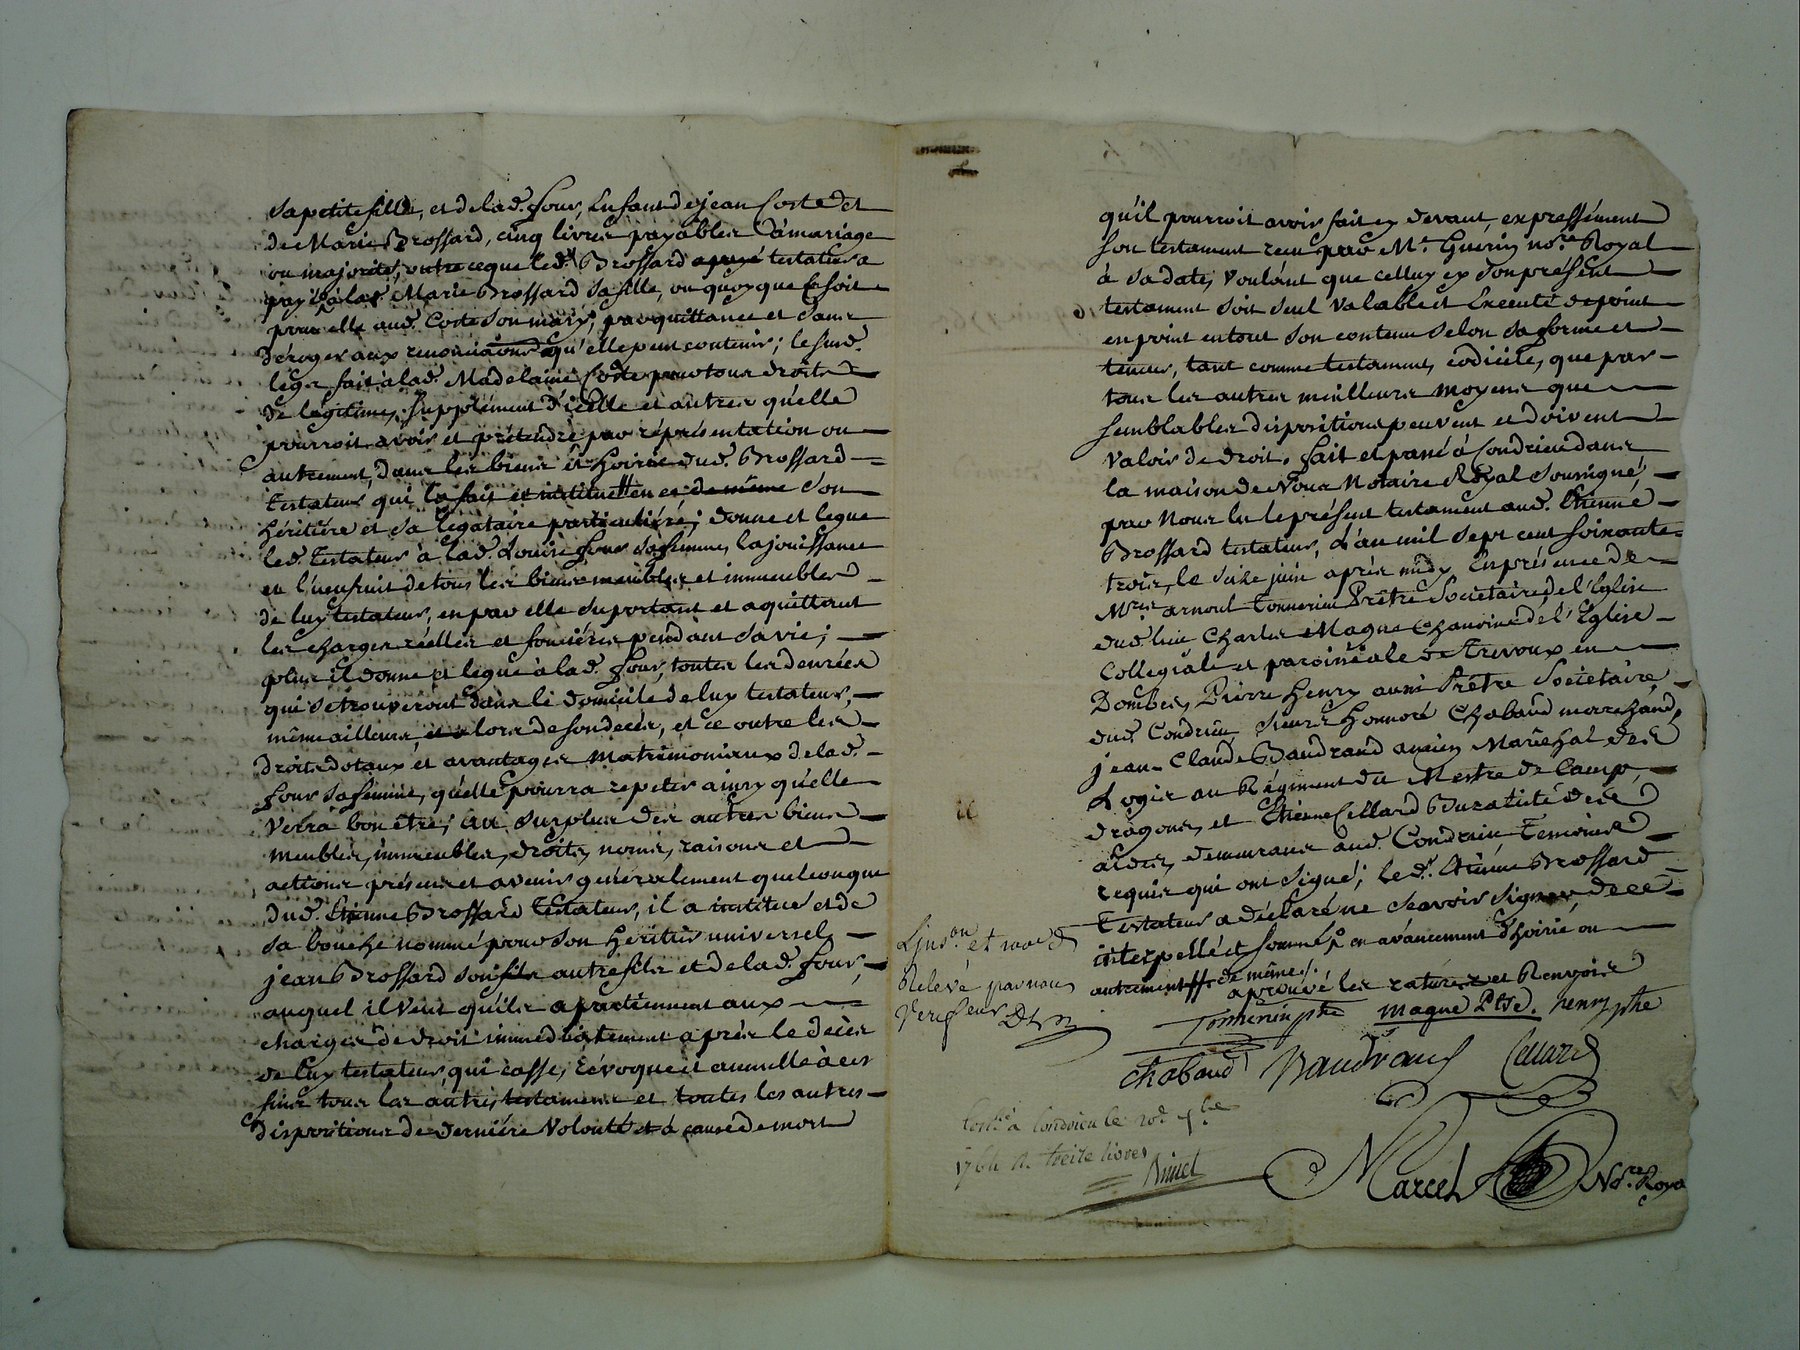 sa petite fille, et de lad. four, Enfant de jean Coste et
de Marie Brossard, cinq livres payables à mariage
ou majorité, outre ce que led. Brossard testateur a
payé à lad. Marie Brossard sa fille, ou quoyque ce soit
pour elle aud. Coste son mary, par quittance et sans
déroger aux renonciations qu'elle peut contenir; le susd.
legs fait à lad. Madelaine Coste pour tous droits
de legitime, supplément d'icelle et autres qu'elle
pourroit avoir et prétendre par réprésentation ou
autrement, dans les biens et hoirie dud. Brossard
Testateur qui la fait et institue en ce de même son
héritière et sa légataire particulière; donne et legue
led. Testateur à lad. Louise four sa femme, la jouissance
et l'usufruit de tous les biens meubles et immeubles
de luy testateur, en par elle suportant et aquittant
les charges réelles et foncières pendant sa vie;
plus il donne et legue à lad. four, toutes les denrées
qui se trouveront dans le domicile de luy testateur,
même ailleurs, lors de son decès, et ce outre les
droits dotaux et avantages matrimoniaux de lad.
four sa femme, qu'elle pourra repeter ainsy qu'elle
verra bon être; au surplus des autres biens
meubles, immeubles, droits, noms, raisons et
actions présens et avenir généralement quelconque
dud. Etienne Brossard Testateur, il a institué et de
sa bouche nommé pour son héritier universel
jean Brossard son autre fils et de lad. four,
auquel il veut qu'ils apartiennent aux
charges de droit immédiatement après le decès
de luy testateur, qui casse, révoque et annulle à ces
fins tous les autres testamens et toutes les autres
dispositions de dernière volonté et à cause de mort
qu'il pourroit avoir fait cy devant, expressément
son testament recu par Me. Guerin nore. Royal
à sa date, voulant que celluy cy son présent
testament soit seul valable et Executé de point
en point en tout son contenu selon sa forme et
teneur, tant comme testament, codicile, que par
tous les autres meilleurs moyens que
semblables dispositions peuvent et doivent
valoir de droit. fait et passé à Condrieu dans
la maison de Nous Notaire Royal soussigné,
par Nous lu le présent testament aud. Etienne
Brossard testateur, L'an mil sept cent soixante
trois, le seize juin après midy, En présence de
Mres. arnoul Tonnerieu Prêtre Sociétaire de l'Eglise
dud. lieu, Charles Magne Chanoine de l'Eglise
Collegiale et paroissiale de Trevoux en
Dombes, Pierre henry aussi Prêtre Sociétaire
dud. Condrieu, Sieurs honnoré Chabaud marchand,
jean Claude Baudrand ancien Maréchal des
Logis au Régiment du Mestre de Camp,
dragons, et Etienne Cellard Buratiste des
aides, demeurans aud. Condrieu Temoins
requis qui ont signé; led. Etienne Brossard
Testateur a déclaré ne sçavoir signer, de ce
interpellé et sommé, en avancement d'hoirie ou
autrement de même
aprouvé les ratures et Renvois
Tonnerieu ptre magne Ptre. henry ptre
Chabaud Baudrand Cellard
Marcel Nore. Roya
Linson. et
Relevé par nous
Verifeur
Contlé à Condrieu le
1764 R. treize livres